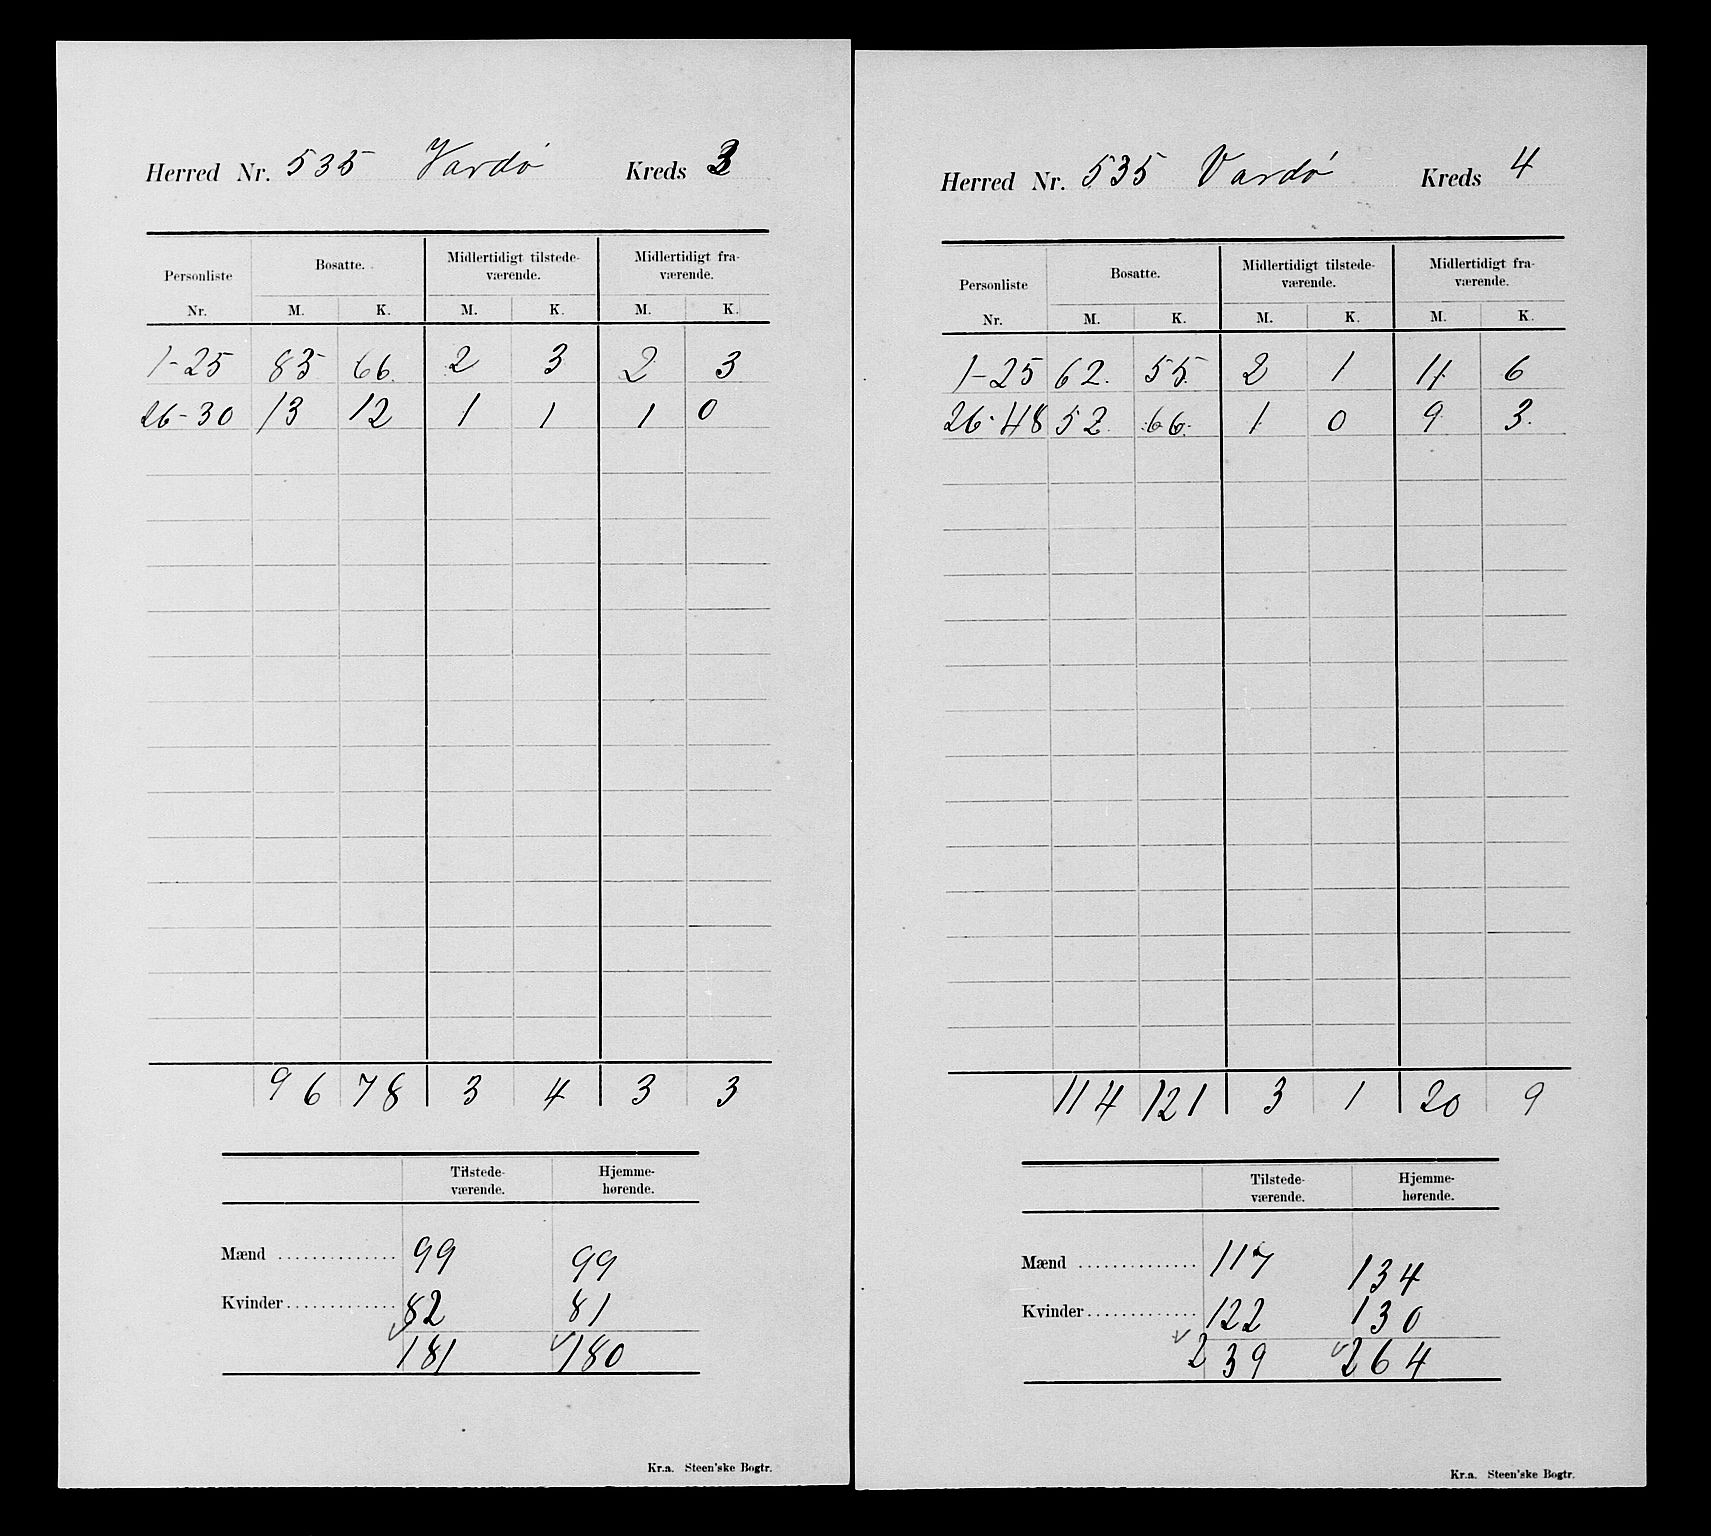 Herred Nr. 535 Vardö Kreds 3
Personliste Bosatte. Midlertidigt tilstede-værende. Midlertidigt fra-værende.
Nr. M. K. M. K. M. K.
1-25 83 66. 2 3 2 3
26-30 13 12 1 1 1 0
96 78 3 4 3 3
Tilstede-værende. Hjemme-hørende.
Mænd .............. 99 99
Kvinder............. 82 81
181 180
Kr.a. Steen'ske Bogtr.
Herred Nr. 535 Vardö Kreds 4
Personliste Bosatte. Midlertidigt tilstede-værende. Midlertidigt fra-værende.
Nr. M. K. M. K. M. K.
1-25 62. 55. 2 1 11. 6
26-48 52. 66. 1 0 9 3.
114 121 3 1 20 9
Tilstede-værende. Hjemme-hørende.
Mænd .............. 117 134
Kvinder............. 122 130
239 264
Kr.a. Steen'ske Bogtr.